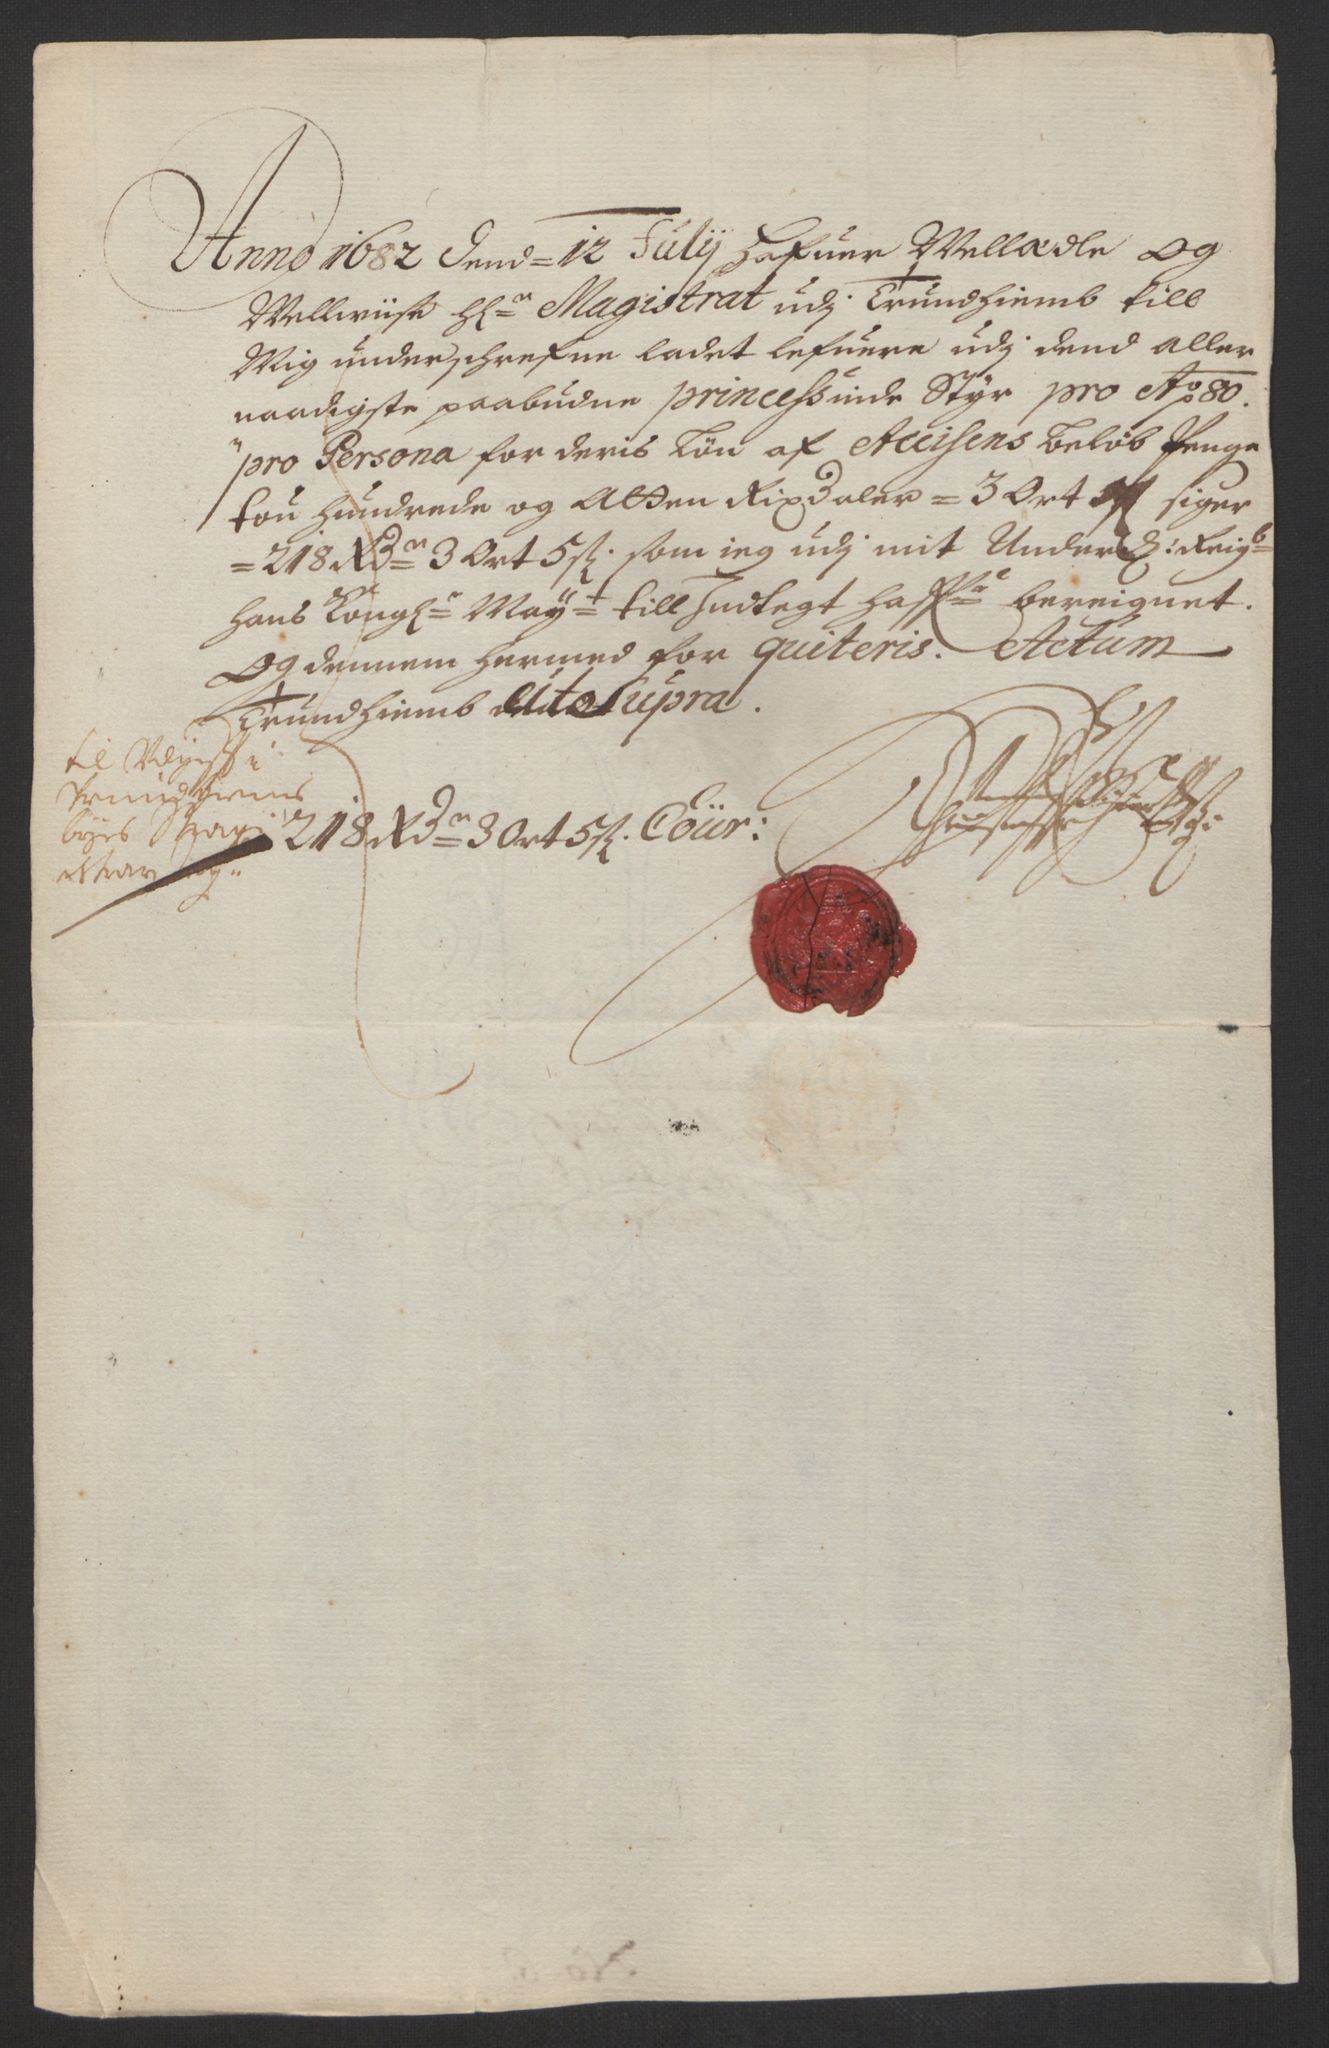 Anno 1682 dend = 12 July Hafuer Wellædle Og
Wellwiise Hl=r Magistrat udj Trundhiemb till
Mig underschrefne ladet lefuere udj dend aller
naadigste paabudne princessinde Styr pro Ao 80.
pro Persona for deris Løn af Accisens beløb Penge
tou hundrede og Atten Rixdaler = 3 Ort 5 sk siger
= 218 Rd=r 3 Ort 5 sk. som ieg udj mit Under
hans Kongl=e May=t till Indtegt haffuer bereignet.
Og dennem hermed for quiteris. Actum
Trundhiemb Ut Supra.
til
Trundhiems
byes
218 Rd=r 3 Ort 5 sk. Cour: